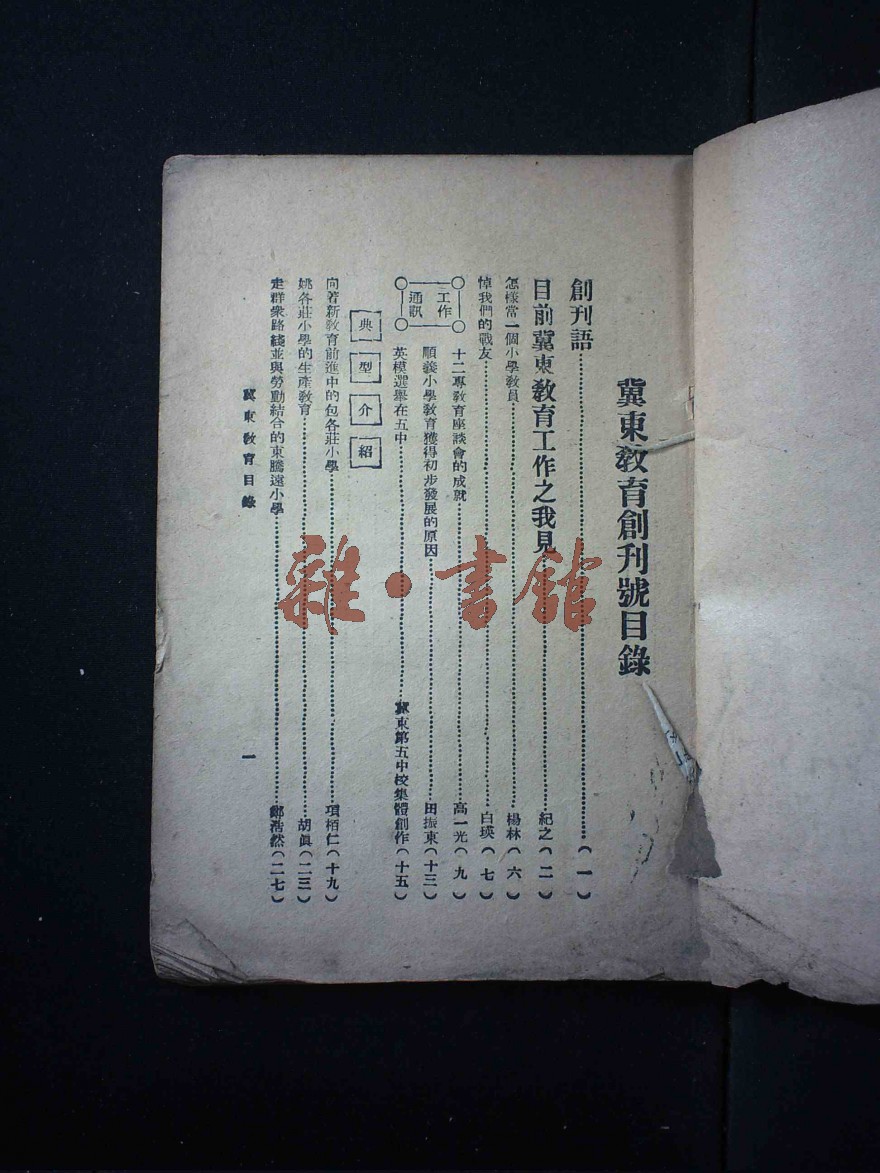 冀東敎育創刊號目錄
創刊語……(一)
目前冀東敎育工作之我見……紀之(二)
怎樣當一個小學敎員……楊林(六)
悼我們的戰友……白瑛(七)
工作通訊
十二專敎育座談會的成就……高一光(九)
順義小學敎育獲得初步發展的原因……田振東(十三)
英模選舉在五中……冀東第五中校集體創作(十五)
典型介紹
向着新敎育前進中的包各莊小學……項栢仁(十九)
姚各莊小學的生產敎育……胡眞(二三)
走群衆路綫並與勞動結合的東騰遠小學……鄭浩然(二七)
冀東敎育目錄
一
雜·書館